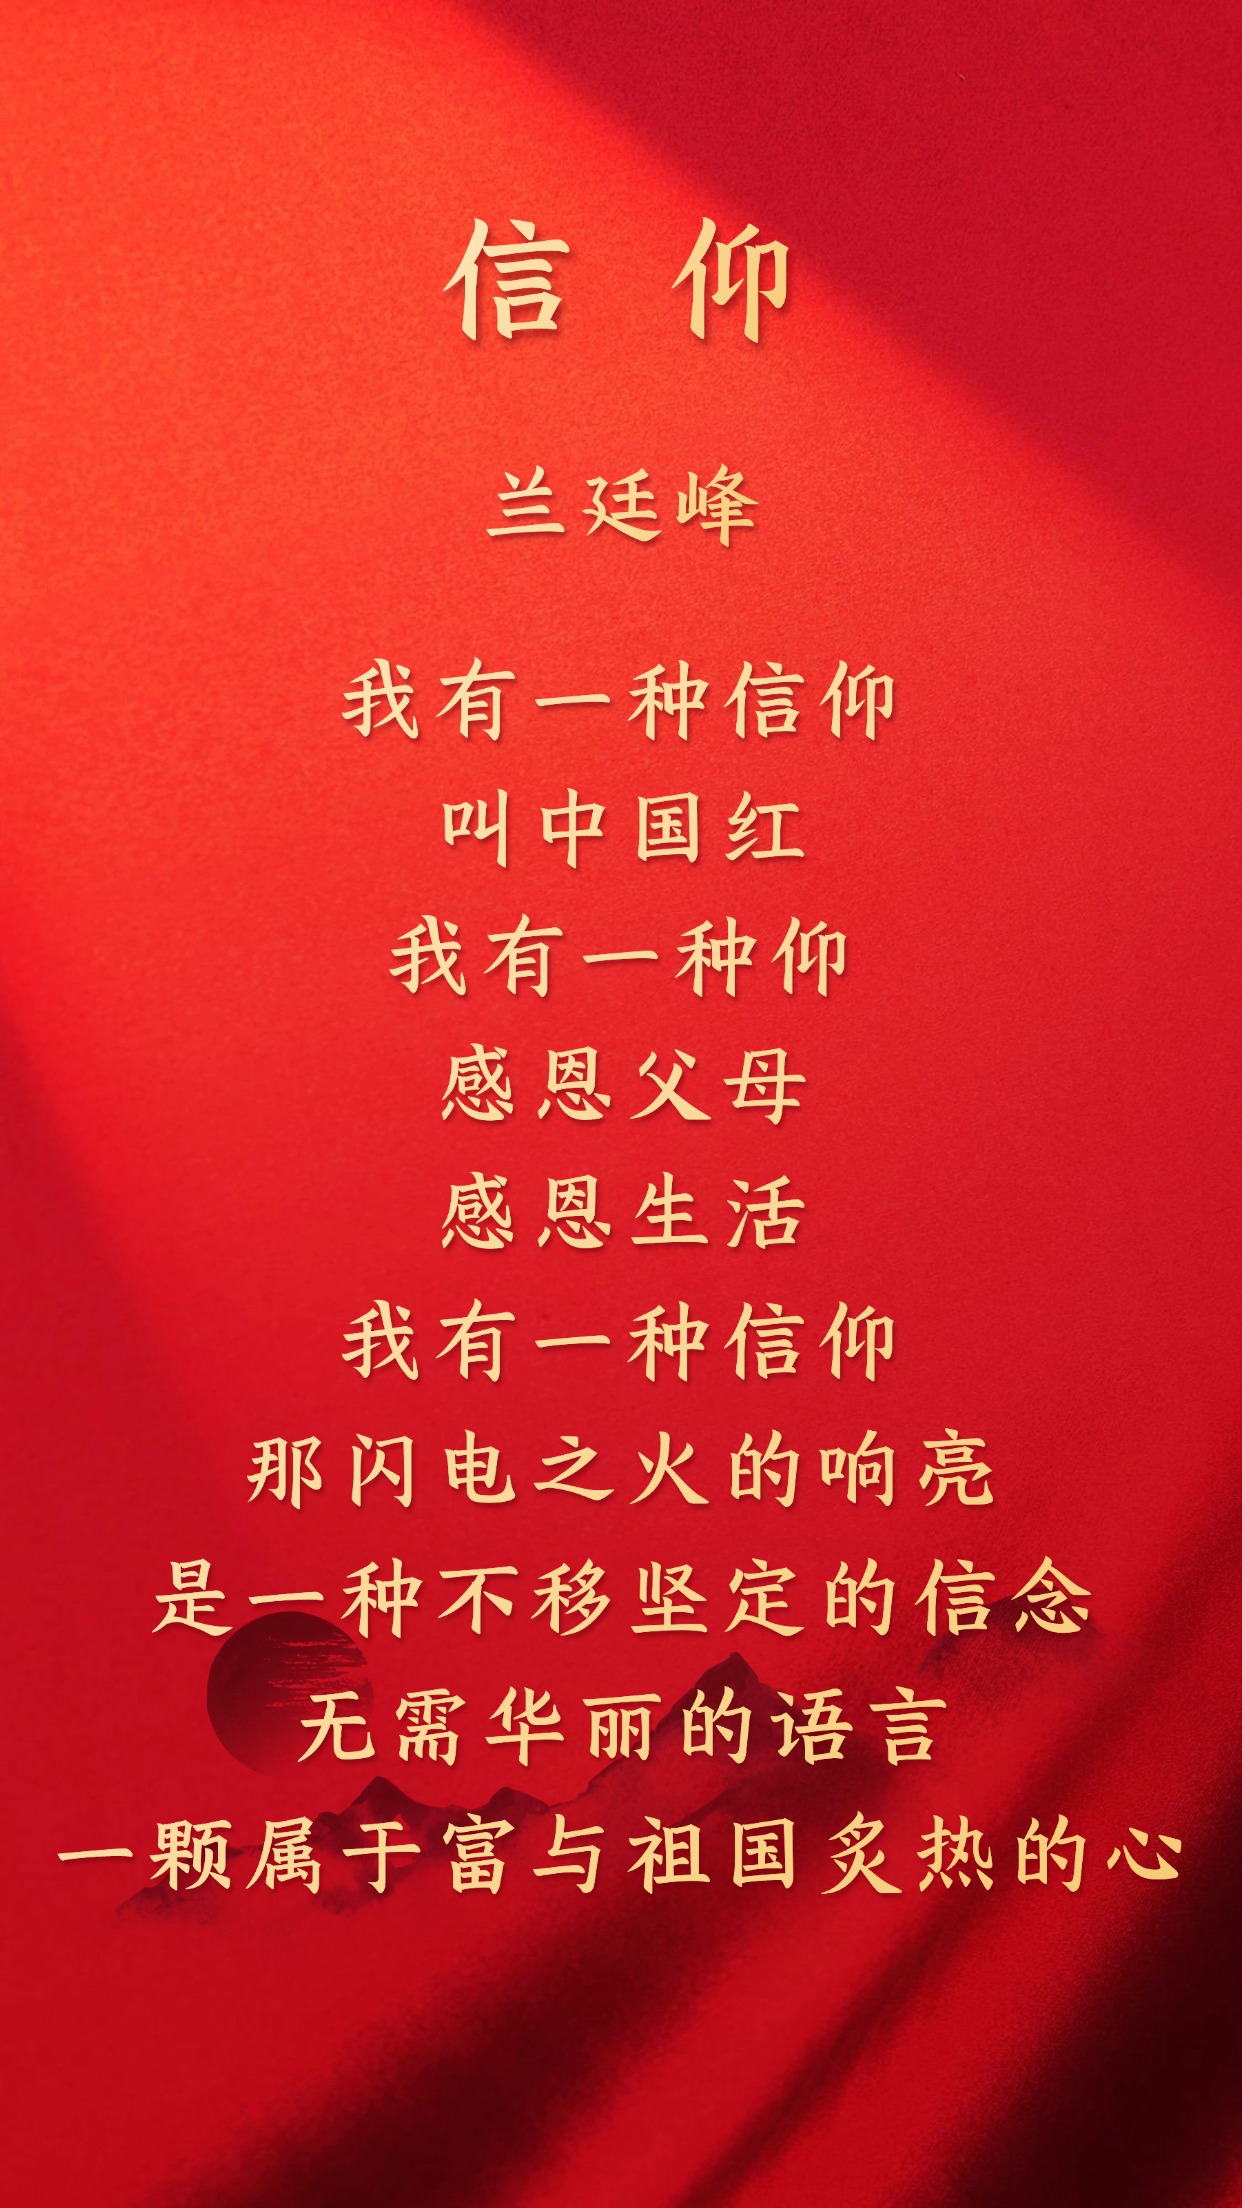 信仰
兰廷峰
我有一种信仰
叫中国红
我有一种仰
感恩父母
感恩生活
我有一种信仰
那闪电之火的响亮
是一种不移坚定的信念
无需华丽的语言
一颗属于富与祖国炙热的心